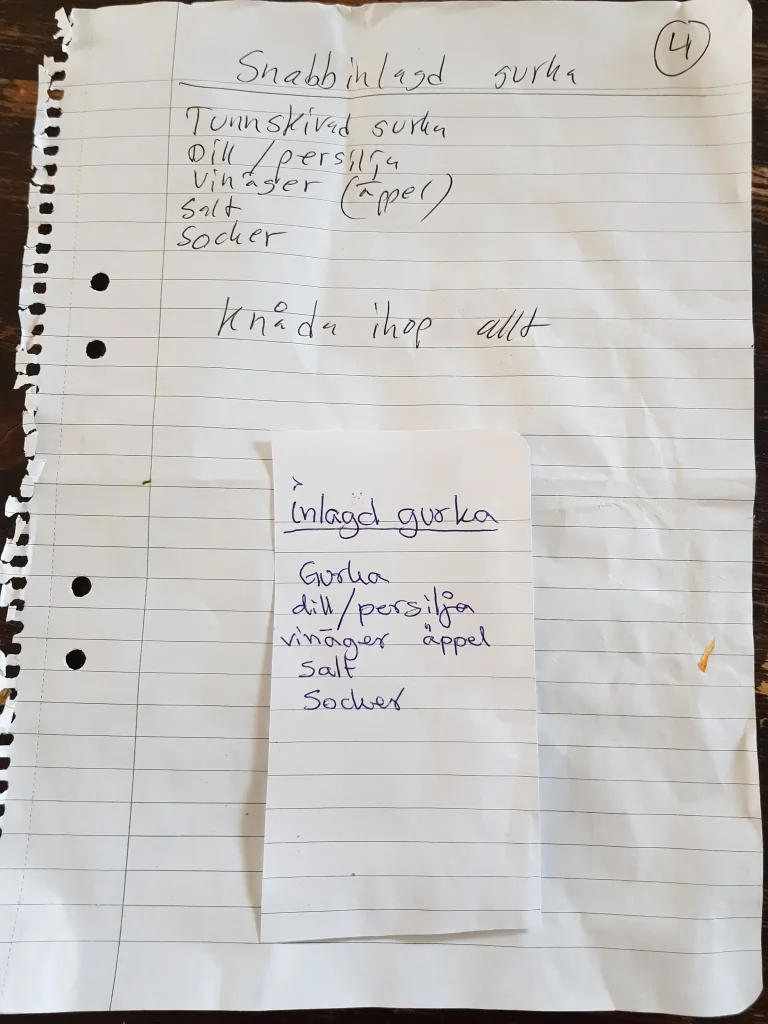 4
Snabbinlagd gurka
Tunnskivad gurka
Dill/persilja
Vinäger (äppel)
Salt
Socker
Knåda ihop allt
inlagd gurka
Gurka
dill/persilja
vinäger äppel
Salt
Socker